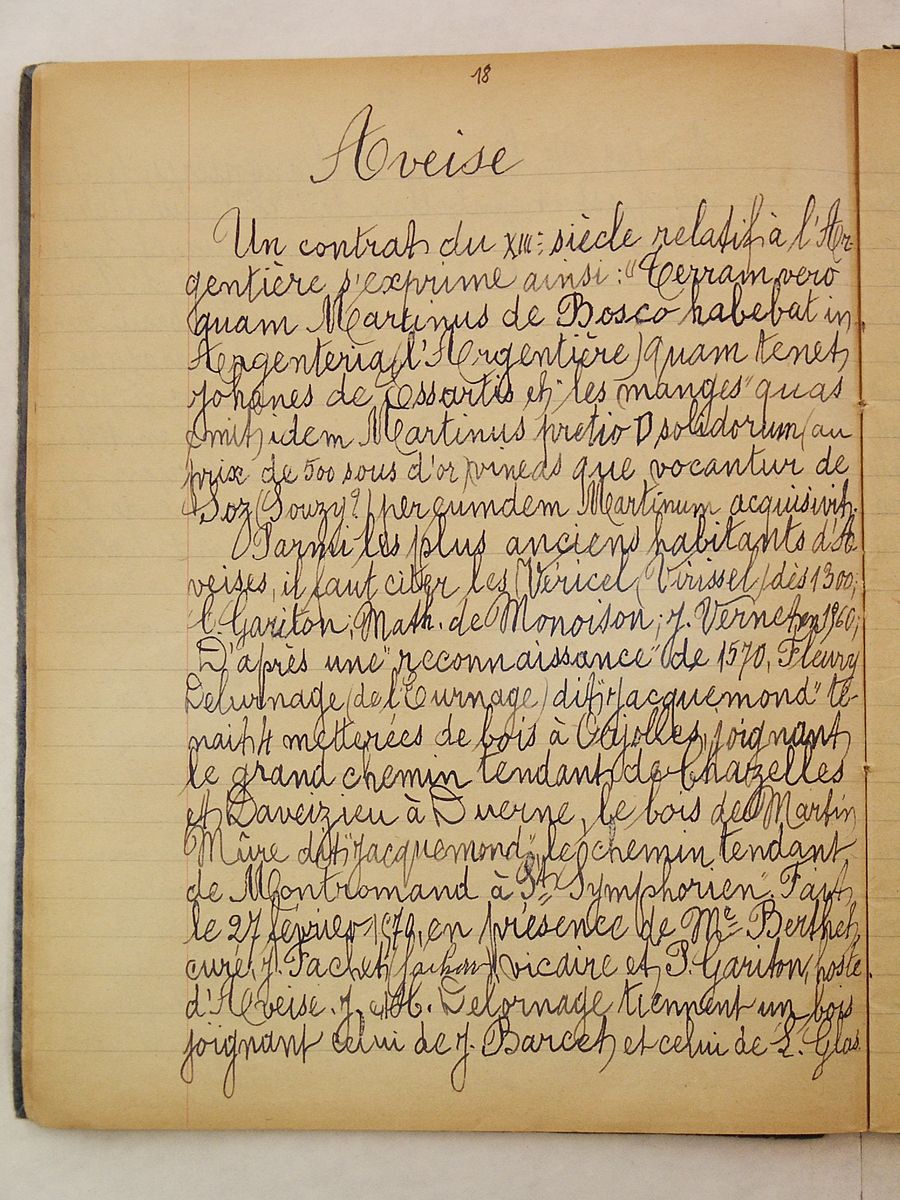 18
Aveise
Un contrat du XIII: siècle relatif à l'Ar-
gentière s'exprime ainsi: "Terram vero
quam Martinus de Bosco habebat in
Argenteria (l'Argentière) quam tenet
Johanes de Essartis et "les manges" quas
emit idem Martinus pretio D solidorum (au
prix de 500 sous d'or) vineas que vocantur de
Soz (Souzy?) per eumdem Martinum acquisivit.
Parmi les plus anciens habitants d'A-
veises, il faut citer les Véricel (Virissel) dès 1300;
Gariton; Math. de Monoison; J. Vernet en 1960;
D'après une "reconnaissance" de 1570, Fleury
Delurnage (de l'Eurnage) dit "Jacquemond" te-
nait 4 metterées de bois à Cojolles, joignant
le grand chemin tendant de Chazelles
et Daveizieu à Duerne, le bois de Martin
Mûre dit "Jacquemond", le chemin tendant
de Montromand à St Symphorien". Fait
le 27 février 1570, en présence de Me Berthet,
curé, J. Fachet vicaire et P. Gariton, hoste
d'Aveise. J. et Delornage tiennent un bois
joignant celui de J. Barcet et celui de L. Glas.